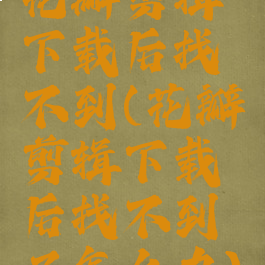 花瓣剪辑
下载后找
不到(花瓣
剪辑下载
后找不到
了怎么办)